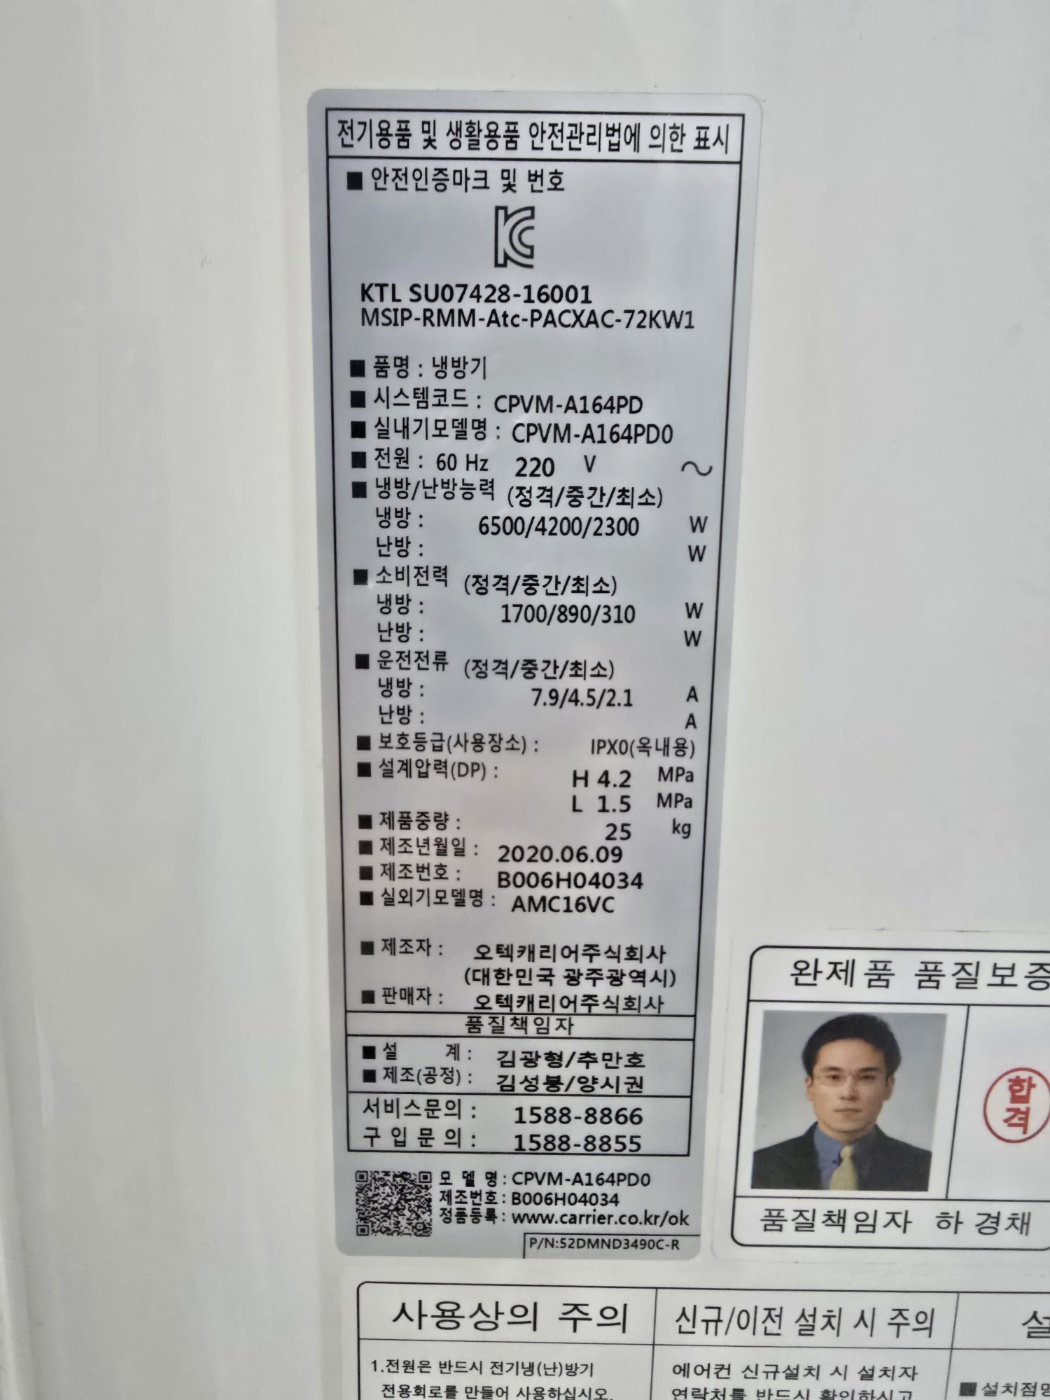 전기용품 및 생활용품 안전관리법에 의한 표시
■ 안전인증마크 및 번호
KC
KTL SU07428-16001
MSIP-RMM-Atc-PACXAC-72KW1
■ 품명 : 냉방기
■ 시스템코드 : CPVM-A164PD
■ 실내기모델명 : CPVM-A164PD0
■ 전원 : 60 Hz 220 V ~
■ 냉방/난방능력 (정격/중간/최소)
냉방 : 6500/4200/2300 W
난방 : W
■ 소비전력 (정격/중간/최소)
냉방 : 1700/890/310 W
난방 : W
■ 운전전류 (정격/중간/최소)
냉방 : 7.9/4.5/2.1 A
난방 : A
■ 보호등급(사용장소) : IPX0(옥내용)
■ 설계압력(DP) : H 4.2 MPa
L 1.5 MPa
■ 제품중량 : 25 kg
■ 제조년월일 : 2020.06.09
■ 제조번호 : B006H04034
■ 실외기모델명 : AMC16VC
■ 제조자 : 오텍캐리어주식회사
(대한민국 광주광역시)
■ 판매자 : 오텍캐리어주식회사
품질책임자
■ 설 계 : 김광형/추만호
■ 제조(공정) : 김성봉/양시권
서비스문의 : 1588-8866
구입문의 : 1588-8855
모델명 : CPVM-A164PD0
제조번호 : B006H04034
정품등록 : www.carrier.co.kr/ok
P/N:52DMND3490C-R
완제품 품질보증
합격
품질책임자 하경채
사용상의 주의
1.전원은 반드시 전기냉(난)방기
전용회로를 만들어 사용하십시오.
신규/이전 설치 시 주의
에어컨 신규설치 시 설치자
연락처를 반드시 확인하시고
설
■ 설치점